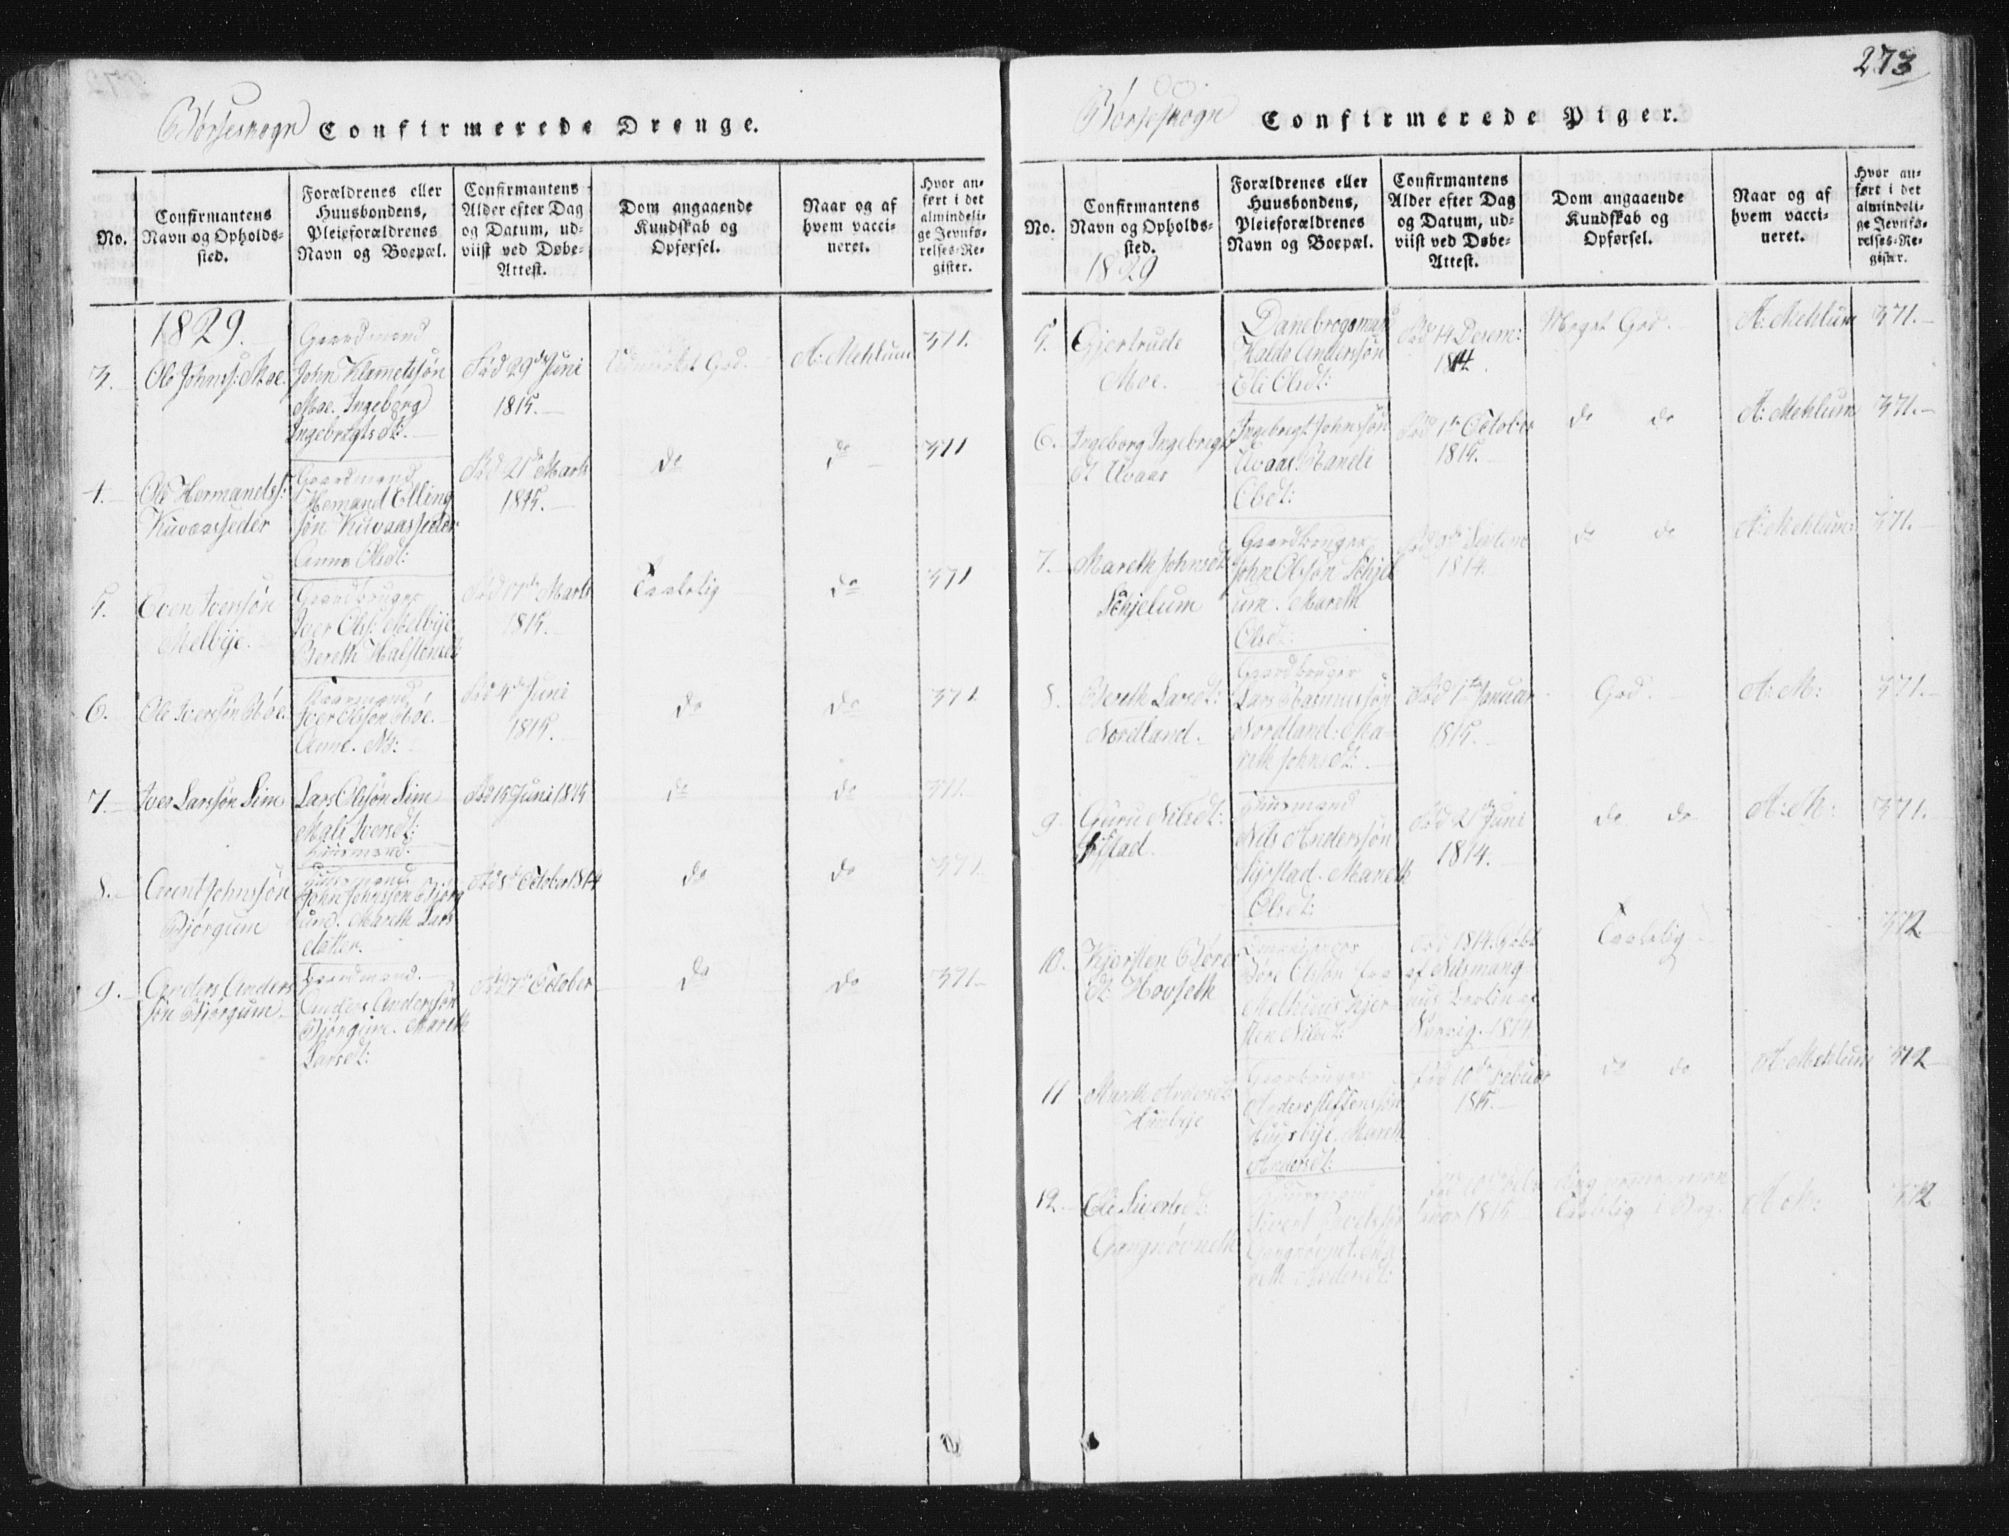 Børsesnogn Confirmerede Drenge.
No.
Confirmantens
Navn og Opholds-
sted.
Forældrenes eller
Huusbondens,
Pleieforældrenes
Navn og Boepæl.
Confirmantens
Alder efter Dag
og Datum, ud-
viist ved Døbe-
Attest.
Dom angaaende
Kundskab og
Opførsel.
Naar og af
hvem vacci-
neret.
Hvor an-
ført i det
almindeli-
ge Jevnfø-
relses-Re-
gister.
1829.
3. Ole Johns: Moe.
Gaardmand
John Klemetsøn
Moe. Ingeborg
Ingebrigtsdt:
Fød 29de Juni
1815.
God.
A: Mehlum
371.
4. Ole Hermands:
Kuvaassæder
Gaardmand
Hemand Elling
søn Kuvaassæder
Anne Olsdt:
Fød 21de Marts
1815.
do
do
371
5. Even Iversøn
Melbye.
Gaardbruger
Iver Ols: Melbye
Bereth Halstensdt
Marts
1815.
Taalelig
do
371
6. Ole Iversøn Bøe.
Iver Olsøn Bøe.
Anne
Fød 4de Juni
1815.
do
do
371
7. Iver Larssøn Lim
Lars Olssøn Lim
Mali Iversdt:
Huusmand.
Fød 15 Juni 1815
do
do
371.
8. Arent Johnssøn
Bjørgum
Huusmand
John Johnssøn Bjørg
um. Mareth Lars
datter.
October 1814
do
do
371
9. Anders Anders
søn Bjørgum
Gaardmand.
Anders Anderssøn
Bjørgum. Mareth
Larsdt:
27de October
do
do
371
273
Børsesnogn Confirmerede Piger.
No.
Confirmantens
Navn og Opholds-
sted.
1829
Forældrenes eller
Huusbondens,
Pleieforældrenes
Navn og Boepæl.
Confirmantens
Alder efter Dag
og Datum, ud-
viist ved Døbe-
Attest.
Dom angaaende
Kundskab og
Opførsel.
Naar og af
hvem vacci-
neret.
Hvor an-
ført i det
almindeli-
ge Jevnfø-
relses-Re-
gister.
5. Gjertrude
Moe.
Danebrogsmand
Haldo Anderssøn
Eli Olsdt:
Fød 14 Decem:
1814.
Meget God.
A: Mehlum
371.
6. Ingeborg Ingebrigts
dt Uvaas
Ingebrigt Johnssøn
Uvaas Randi
Olsdt:
Fød 1ste October
1815.
do do
A: Mehlum
371.
7. Mareth Johnsdt:
Schjelum
Gaardbruger
John Olssøn Schjel
um. Mareth
Olsdt:
Septem
1814.
do do
A: Mehlum
371.
8. Bereth Larsdt:
Nordland.
Gaardbruger
Lars Rasmussøn
Nordland: Ma-
reth Johnsdt:
Fød 1ste Januar
1815.
God.
A: M:
371.
9. Guru Nilsdt:
Huusmand
Nils Anderssøn
Mareth
Olsdt:
Juni
1814.
do do
A: M:
371.
10. Kjersten Tøres
dt: Hovseth
Tøre Olssøn
Melhuus Kjer-
sten Nilsdt:
Fød 1814. Døbt
af Nilsmang
1814
Taalelig
372
11 Mareth Andersdt:
Huusbye
Gaardbruger
Anders Steffenssøn
Huusbye. Mareth
Andersdt:
Fød 10de Februar
1815.
do do
A: Mehlum
372
12. Eli Sivertsdt:
Huusmand
Sivert Povelssøn
reth Andersdt:
Fød 10de
1815
Taalelig i
A: M:
372